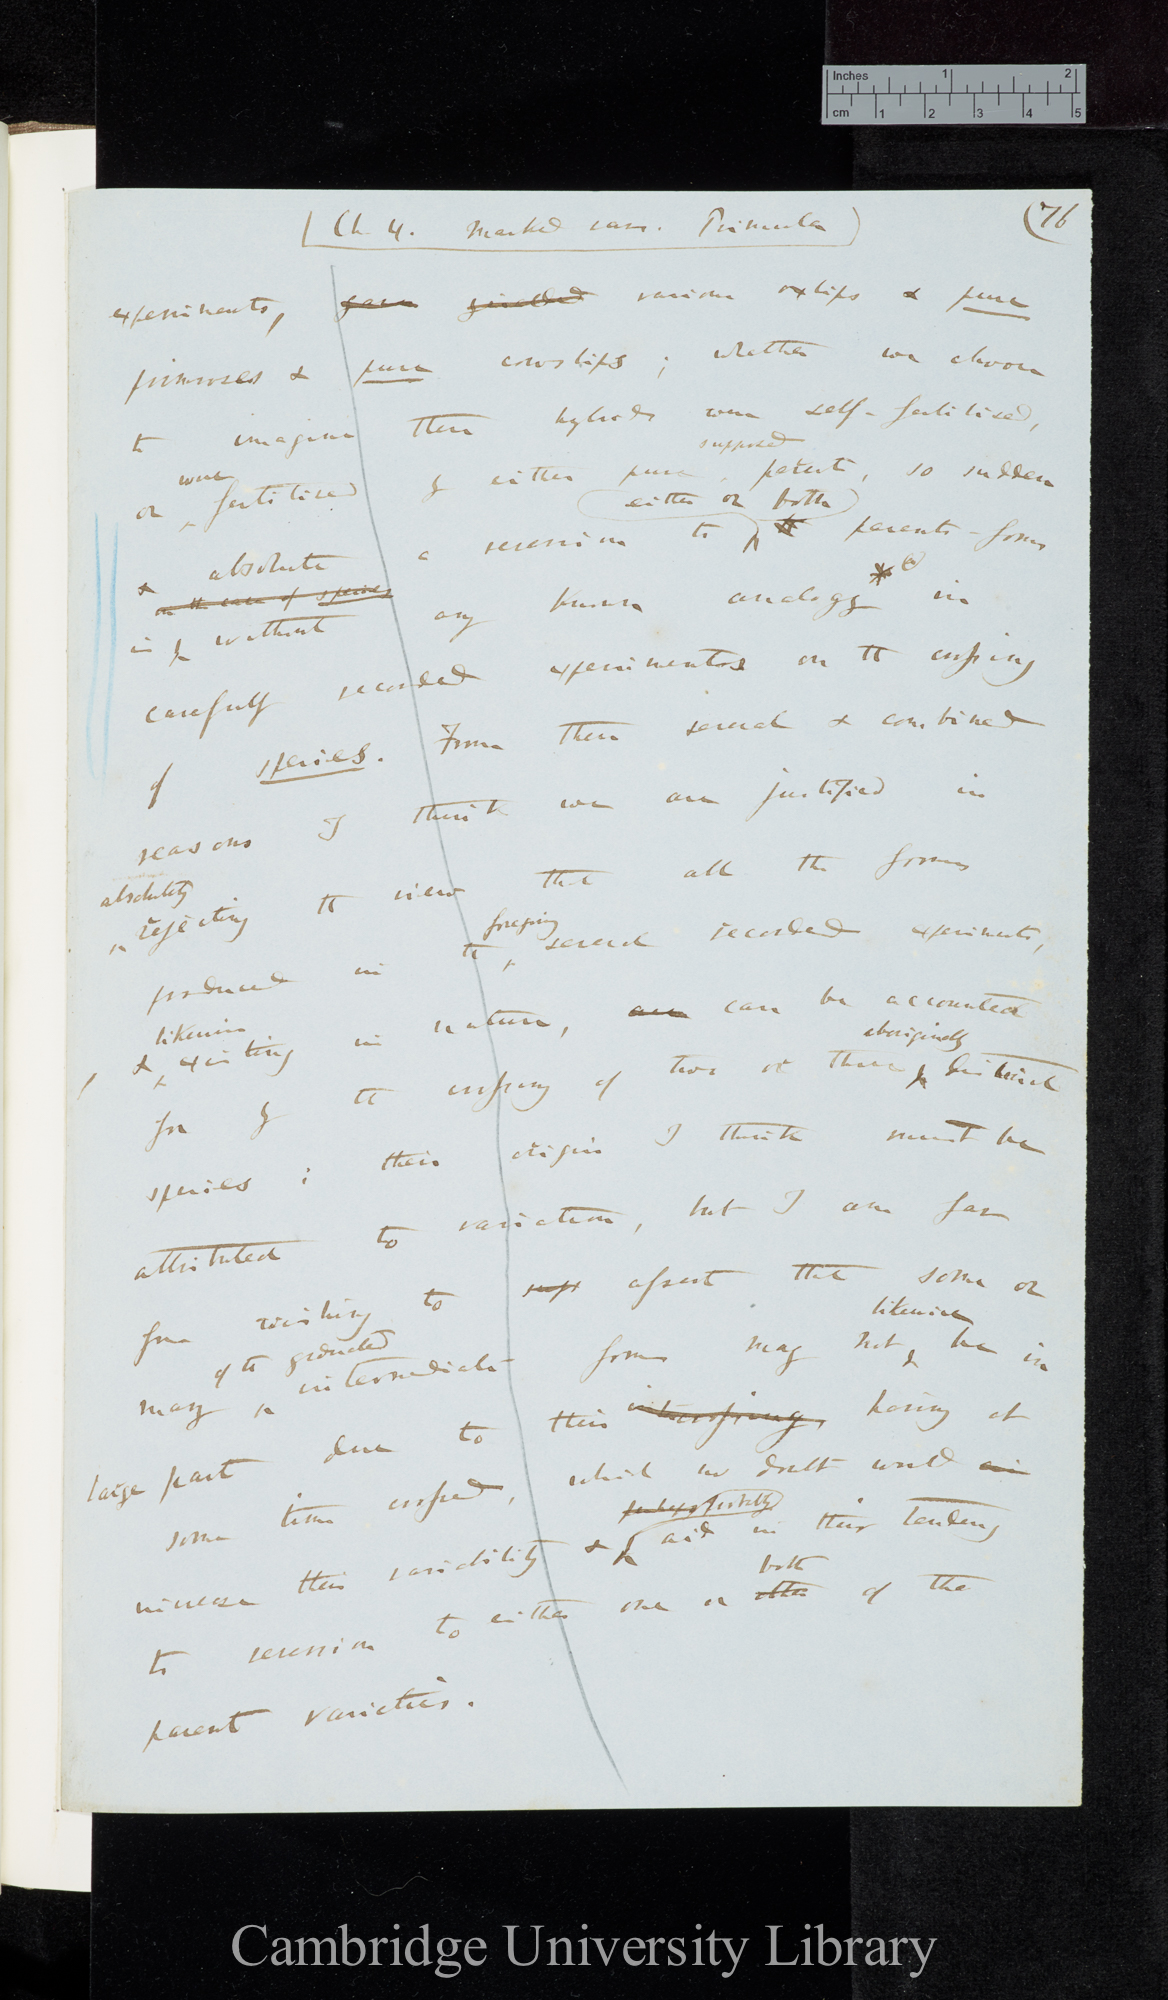 Inches 1 2
cm 1 2 3 4 5
Ch. 4. Marked case. Primula
76
experiments, gave yielded various oxlips & pure
primroses & pure cowslips; whether we choose
to imagine these hybrids were self-fertilised,
supposed
were
or fertilised by either pure parent, so sudden
either or both
& absolute a reversion to the parent-forms
in the case of species
is without any known analogy * in
carefully recorded experiments on the crossing
of species. From these several & combined
reasons I think we are justified in
absolutely
rejecting the view that all the forms
foregoing
produced in the several recorded experiments,
likewise
& existing in nature, are can be accounted
aboriginally
for by the crossing of two or three distinct
species; their origin I think must be
attributed to variation, but I am far
from wishing to assert that some or
likewise
of the graduated
many intermediate forms may not be in
large part due to their intercrossing having at
some time crossed, which no doubt would
perhaps probably
increase their variability & aid in their tendency
both
to reversion to either one or other of the
parent varieties.
Cambridge University Library